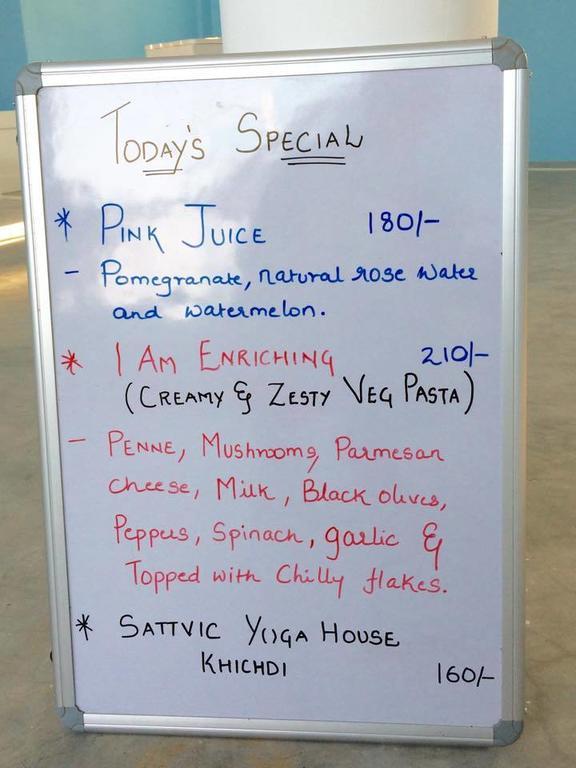 TODAY'S SPECIAL
* PINK JUICE 180/-
- Pomegranate, natural rose water
and watermelon.
* I AM ENRICHING 210/-
(CREAMY & ZESTY VEG PASTA)
- PENNE, Mushrooms, Parmesan
cheese, Milk, Black olives,
Peppers, Spinach, garlic &
Topped with Chilly flakes.
* SATTVIC YOGA HOUSE
KHICHDI 160/-